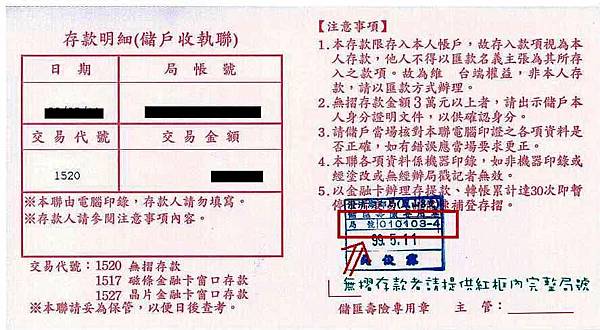 存款明細(儲戶收執聯)
日期
局帳號
交易代號
交易金額
1520
※本聯由電腦印錄，存款人請勿填寫。
※存款人請參閱注意事項內容。
交易代號：1520 無摺存款
1517 磁條金融卡窗口存款
1527 晶片金融卡窗口存款
※本聯請妥為保管，以便日後查考。
【注意事項】
1.本存款限存入本人帳戶，故存入款項視為本
人存款，他人不得以匯款名義主張為其所存
入之款項。故為維　台端權益，非本人存
款，請以匯款方式辦理。
2.無摺存款金額3萬元以上者，請出示儲戶本
人身分證明文件，以供確認身分。
3.請儲戶當場核對本聯電腦印證之各項資料是
否正確，如有錯誤應當場要求更正。
4.本聯各項資料係機器印錄，如非機器印錄或
經塗改或無經辦局戳記者無效。
5.以金融卡辦理存提款、轉帳累計達30次即暫
停
補登存摺。
局號 010103-4
99.5.11
無摺存款者請提供紅框內完整局號
儲匯壽險專用章
主管：